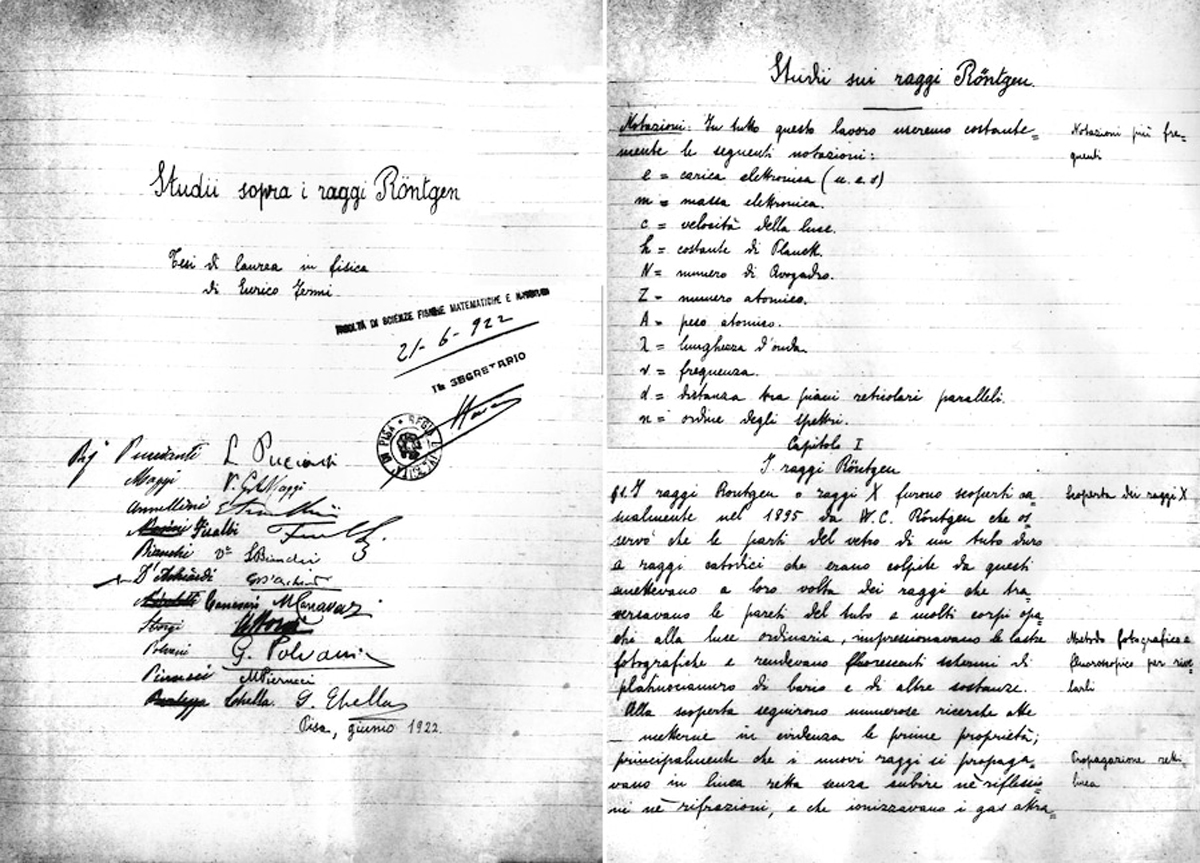 Studii sopra i raggi Röntgen
Tesi di laurea in fisica
di Enrico Fermi
FACOLTÀ DI SCIENZE FISICHE MATEMATICHE E NATURALI
21-6-922
IL SEGRETARIO
Puccianti L Puccianti
Maggi V. G A Maggi
Ficalbi
Bianchi V° L Bianchi
D'Achiardi G D'Achiardi
Canavari M Canavari
Polvani G. Polvani
Pierucci M Pierucci
G. Ebella
Pisa, giugno 1922.
Studii sui raggi Röntgen.
Notazioni: In tutto questo lavoro useremo costante=
mente le seguenti notazioni:
e = carica elettronica (u.e.s)
m = massa elettronica.
c = velocità della luce.
h = costante di Planck.
N = numero di Avogadro.
Z = numero atomico.
A = peso atomico.
λ = lunghezza d'onda.
ν = frequenza.
d = distanza tra piani reticolari paralleli.
n = ordine degli spettri.
Notazioni più fre=
quenti
Capitolo I
I raggi Röntgen
§1. I raggi Rontgen o raggi X furono scoperti ca
sualmente nel 1895 da W.C. Röntgen che os=
servò che le parti del vetro di un tubo duro
a raggi catodici che erano colpite da questi
emettevano a loro volta dei raggi che tra=
versavano le pareti del tubo e molti corpi opa=
chi alla luce ordinaria, impressionavano le lastre
fotografiche e rendevano fluorescenti schermi di
platinocianuro di bario e di altre sostanze.
Alla scoperta seguirono numerose ricerche atte
a metterne in evidenza le prime proprietà;
principalmente che i nuovi raggi si propaga=
vano in linea retta senza subire nè riflessio=
ni nè rifrazioni, e che ionizzavano i gas attra=
Scoperta dei raggi X
Metodo fotografico e
fluoroscopico per rive=
larli
Propagazione retti=
linea